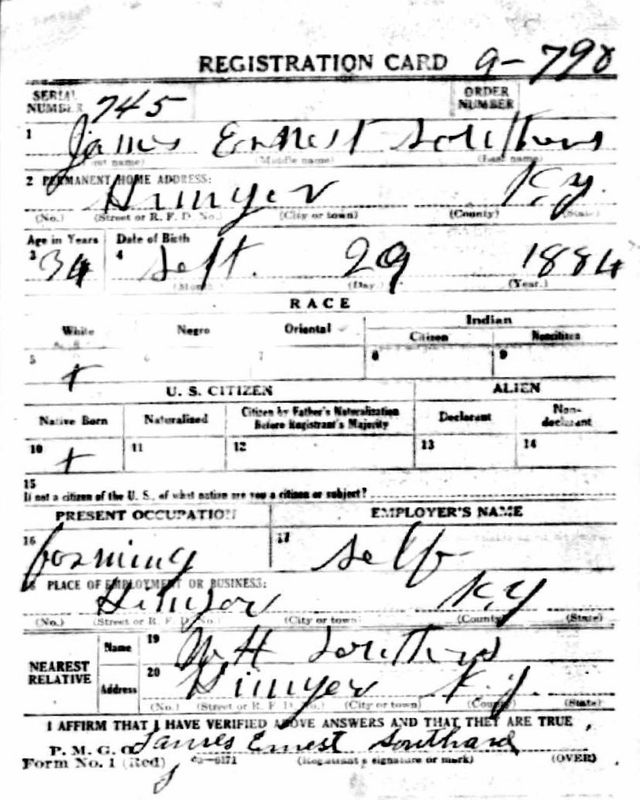 REGISTRATION CARD 9-790
SERIAL NUMBER 745 ORDER NUMBER
1 James Ernest Southard
(First name) (Middle name) (Last name)
2 PERMANENT HOME ADDRESS:
Himyer Ky.
(No.) (Street or R. F. D. No.) (City or town) (County) (State)
Age in Years Date of Birth
3 34 4 Sept. 29 1884
(Month) (Day) (Year.)
RACE
White Negro Oriental Indian
Citizen Noncitizen
5 6 7 8 9
+
U. S. CITIZEN ALIEN
Native Born Naturalized Citizen by Father's Naturalization Before Registrant's Majority Declarant Non-declarant
10 + 11 12 13 14
15
If not a citizen of the U. S., of what nation are you a citizen or subject?
PRESENT OCCUPATION EMPLOYER'S NAME
16 farming 17 self
18 PLACE OF EMPLOYMENT OR BUSINESS:
Himyer Ky
(No.) (Street or R. F. D. No.) (City or town) (County) (State)
NEAREST RELATIVE
Name 19 W H
Address 20 Himyer Ky.
(No.) (Street or R. F. D. No.) (City or town) (County) (State)
I AFFIRM THAT I HAVE VERIFIED ABOVE ANSWERS AND THAT THEY ARE TRUE
P. M. G. O. James Ernest Southard
Form No. 1 (Red) 03-6171 (Registrant's signature or mark) (OVER)